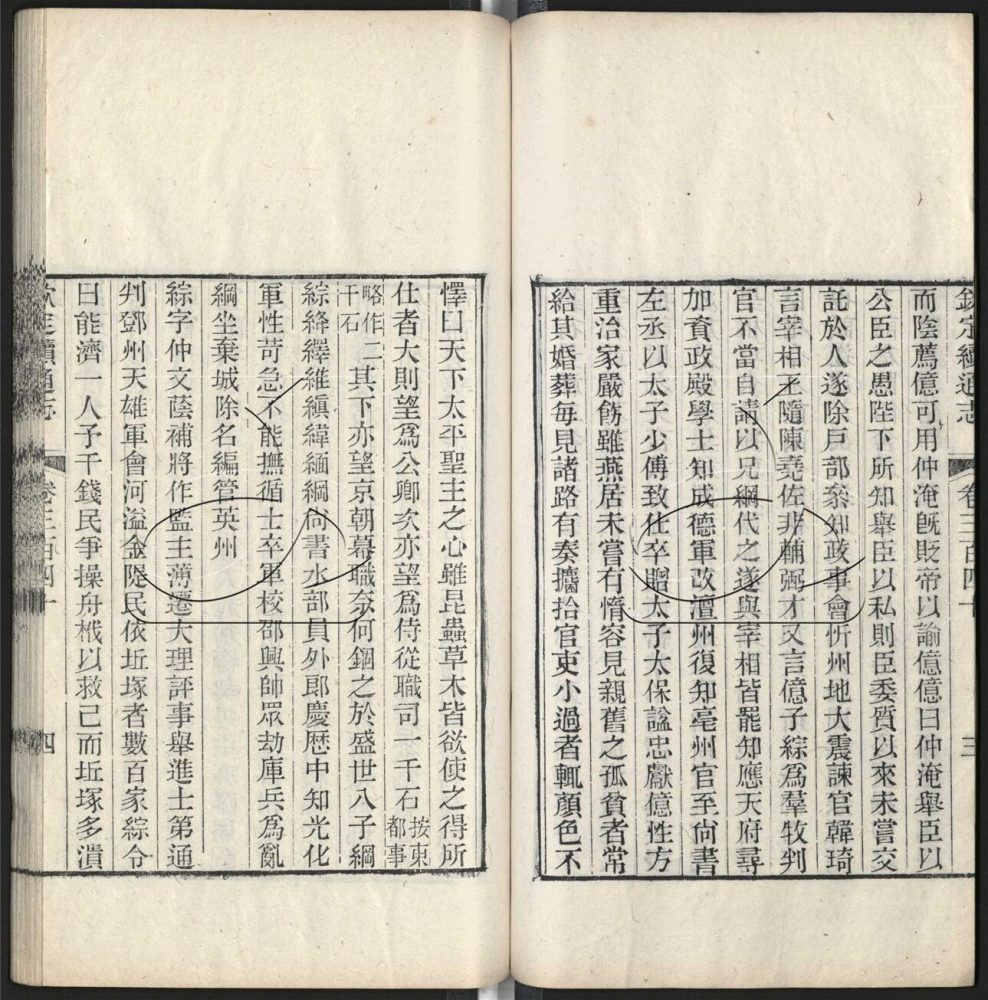 欽定續通志 卷三百四十 三
而陰薦億可用仲淹旣貶帝以諭億億曰仲淹舉臣以
公臣之愚陛下所知舉臣以私則臣委質以來未嘗交
託於人遂除戸部叅知政事會忻州地大震諫官韓琦
言宰相王隨陳堯佐非輔弼才又言億子綜爲羣牧判
官不當自請以兄綱代之遂與宰相皆罷知應天府尋
加資政殿學士知成德軍改澶州復知亳州官至尙書
左丞以太子少傅致仕卒贈太子太保諡忠獻億性方
重治家嚴飭雖燕居未嘗有惰容見親舊之孤貧者常
給其婚葬每見諸路有奏攟拾官吏小過者輒顔色不
懌曰天下太平聖主之心雖昆蟲草木皆欲使之得所
仕者大則望爲公卿次亦望爲侍從職司二千石按東都事
略作二千石其下亦望京朝幕職奈何錮之於盛世八子綱
綜絳繹維縝緯緬綱尙書水部員外郎慶歷中知光化
軍性苛急不能撫循士卒軍校邵興帥眾劫庫兵爲亂
綱坐棄城除名編管英州
綜字仲文蔭補將作監主薄遷大理評事舉進士第通
判鄧州天雄軍會河溢金隄民依丘塚者數百家綜令
曰能濟一人予千錢民爭操舟栰以救已而丘塚多潰
欽定續通志 卷三百四十 四